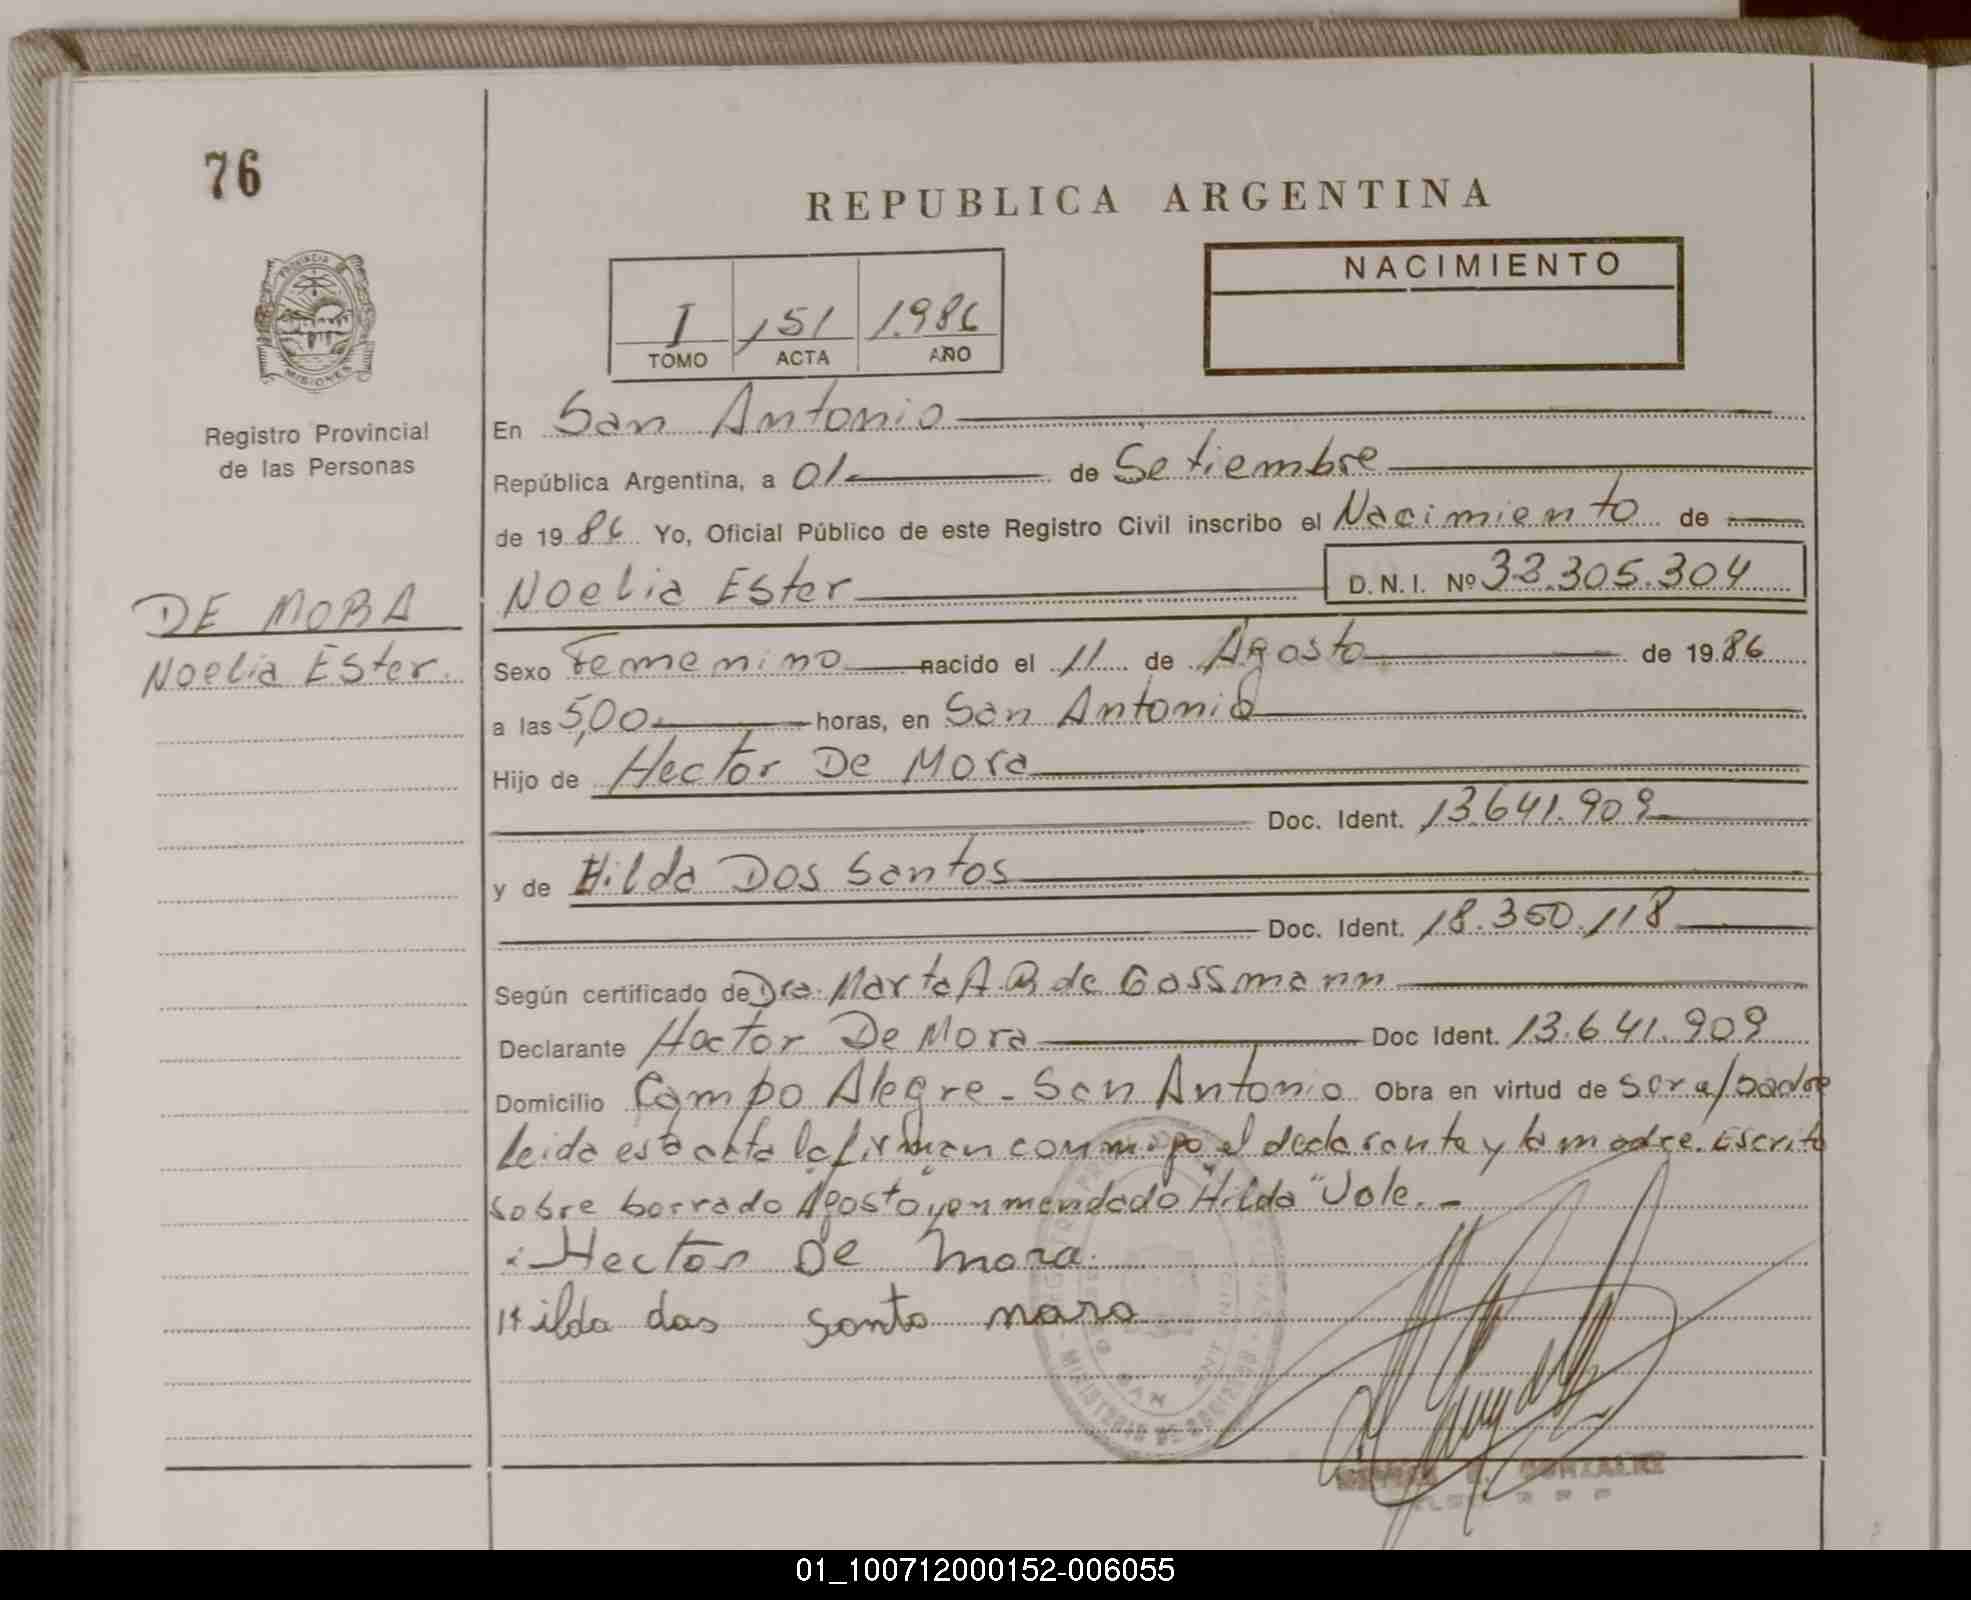 76
REPUBLICA ARGENTINA
NACIMIENTO
I 151 1.986
TOMO ACTA AÑO
PROVINCIA DE MISIONES
Registro Provincial
de las Personas
En San Antonio
República Argentina, a 01 de Setiembre
de 1986 Yo, Oficial Público de este Registro Civil inscribo el Nacimiento de
Noelia Ester D.N.I. Nº 33.305.304
DE MORA
Noelia Ester.
Sexo Femenino nacido el 11 de Agosto de 1986
a las 5,00 horas, en San Antonio
Hijo de Hector De Mora
Doc. Ident. 13.641.909
y de Hilda Dos Santos
Doc. Ident. 18.350.118
Según certificado de Dra. Marta A. R de Gassmann
Declarante Hector De Mora Doc Ident. 13.641.909
Domicilio Campo Alegre - San Antonio Obra en virtud de ser el padre
Leida esta acta la firman conmigo el declarante y la madre. Escrito
sobre borrado Agosto, enmendado "Hilda" Vale. -
Hector De Mora.
Hilda dos santo mora
SAN ANTONIO
GONZALEZ
01_100712000152-006055